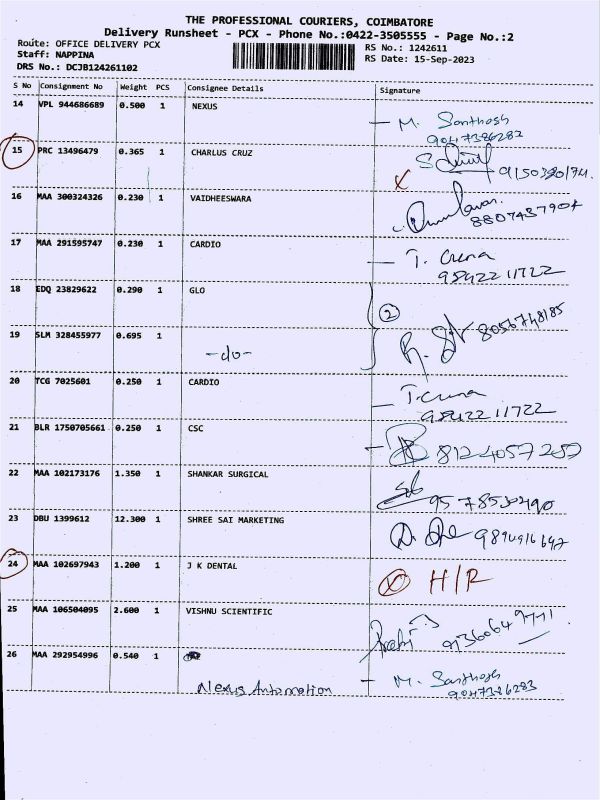 THE PROFESSIONAL COURIERS, COIMBATORE
Delivery Runsheet - PCX - Phone No.:0422-3505555 - Page No.:2
Route: OFFICE DELIVERY PCX
Staff: NAPPINA
DRS No.: DCJB124261102
RS No.: 1242611
RS Date: 15-Sep-2023
S No Consignment No Weight PCS Consignee Details Signature
14 VPL 944686689 0.500 1 NEXUS
- M. Santhosh
9047386283
15 PRC 13496479 0.365 1 CHARLUS CRUZ
X
16 MAA 300324326 0.230 1 VAIDHEESWARA
8807437904
17 MAA 291595747 0.230 1 CARDIO
- T. Crena
9842211722
18 EDQ 23829622 0.290 1 GLO
2
19 SLM 328455977 0.695 1
-do-
8056748185
20 TCG 7025601 0.250 1 CARDIO
- T. Crena
9842211722
21 BLR 1750705661 0.250 1 CSC
8124057257
22 MAA 102173176 1.350 1 SHANKAR SURGICAL
9578530490
23 DBU 1399612 12.300 1 SHREE SAI MARKETING
24 MAA 102697943 1.200 1 J K DENTAL
X H/R
25 MAA 106504095 2.600 1 VISHNU SCIENTIFIC
26 MAA 292954996 0.540 1
Nexus Automation
- M. Santhosh
9047386283